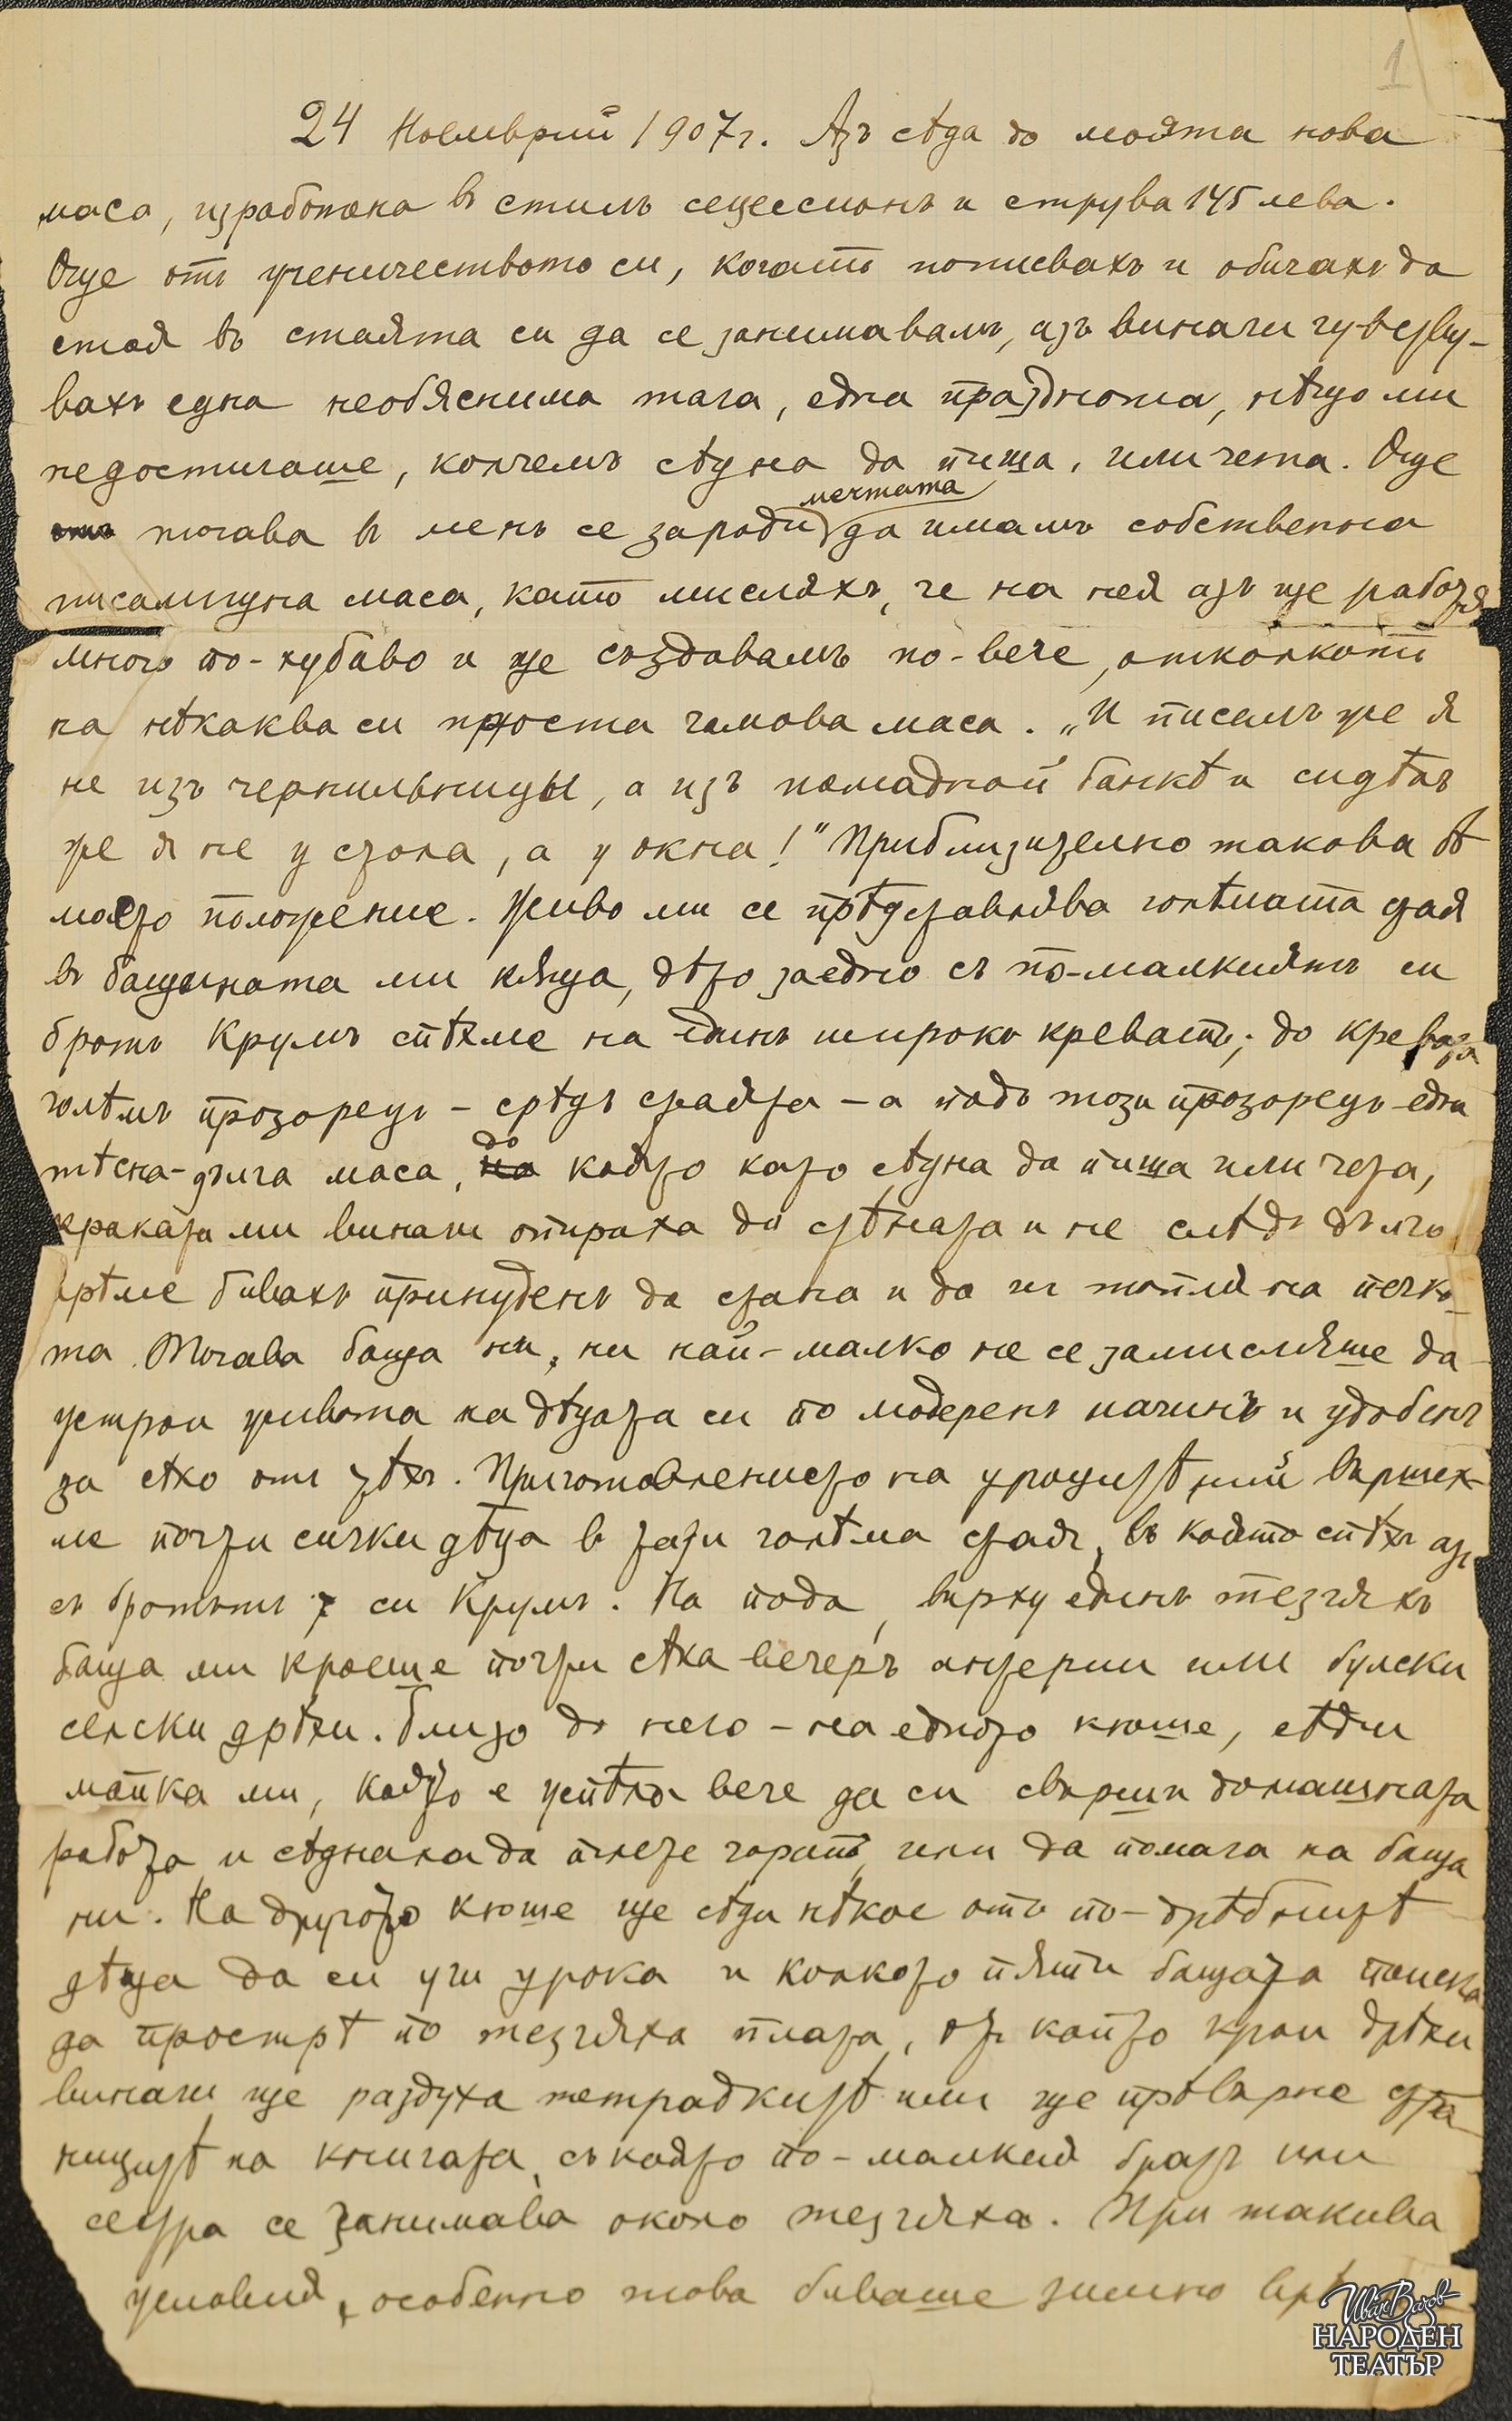 1
24 Ноемврий 1907 г. Азъ сѣда до моята нова
маса, изработена въ стилъ сецесионъ и струва 145 лева.
Още отъ ученичеството си, когато пописвахъ и обичахъ да
стоя въ стаята си да се занимавамъ, азъ винаги чувству-
вахъ една необяснима тага, една празднота, нѣщо ми
недостигаше, колчемъ сѣдна да пиша, или чета. Още
тогава въ менъ се зароди мечтата да имамъ собственна
писалищна маса, като мисляхъ, че на нея азъ ще работя
много по-хубаво и ще създавамъ по-вече, отколкото
на нѣкаква си проста чамова маса. „И писалъ же я
не изъ чернильницы, а изъ помадной банкѣ и сидѣлъ
же я не у стола, а у окна!" Приблизително такова бѣ
моето положение. Живо ми се прѣдставлява голѣмата стая
въ бащината ми кяща, дѣто заедно съ по-малкиятъ си
братъ Крумъ спѣхме на единъ широкъ креватъ; до кревата
голѣмъ прозорецъ – срѣдъ стаята – а подъ този прозорецъ една
тѣсна-дълга маса, до която като сѣдна да пиша или чета,
краката ми винаги опираха до стѣната и не слѣдъ дълго
врѣме бивахъ принуденъ да стана и да ги топля на печка-
та. Тогава баща ни, ни най-малко не се замисляше да
устрои живота на дѣцата си по модеренъ начинъ и удобенъ
за сѣко отъ тѣхъ. Приготовлението на уроцитѣ ний вършех-
ме почти сички дѣца въ тази голѣма стая, въ която спѣхъ азъ
съ братътъ си Крумъ. На пода, върху единъ тезгяхъ
баща ми кроеше почти сѣка вечеръ антерии или булски
селски дрѣхи. Близо до него – на едното кюше, сѣди
майка ми, която е успѣла вече да си свърши домашната
работа и сѣднала да плете чорапъ или да помага на баща
ни. На другото кюше ще сѣди нѣкое отъ по-дрѣбнитѣ
дѣца да си учи урока и колкото пяти бащата поиска
да прострѣ по тезгяха плата, отъ който крои дрѣхи
винаги ще раздуха тетрадкитѣ или ще прѣвърне стра-
ницитѣ на книгата, съ която по-малкия братъ или
сестра се занимава около тезгяха. При такива
условия, особенно това биваше зимно
Иван Вазов
НАРОДЕН
ТЕАТЪР